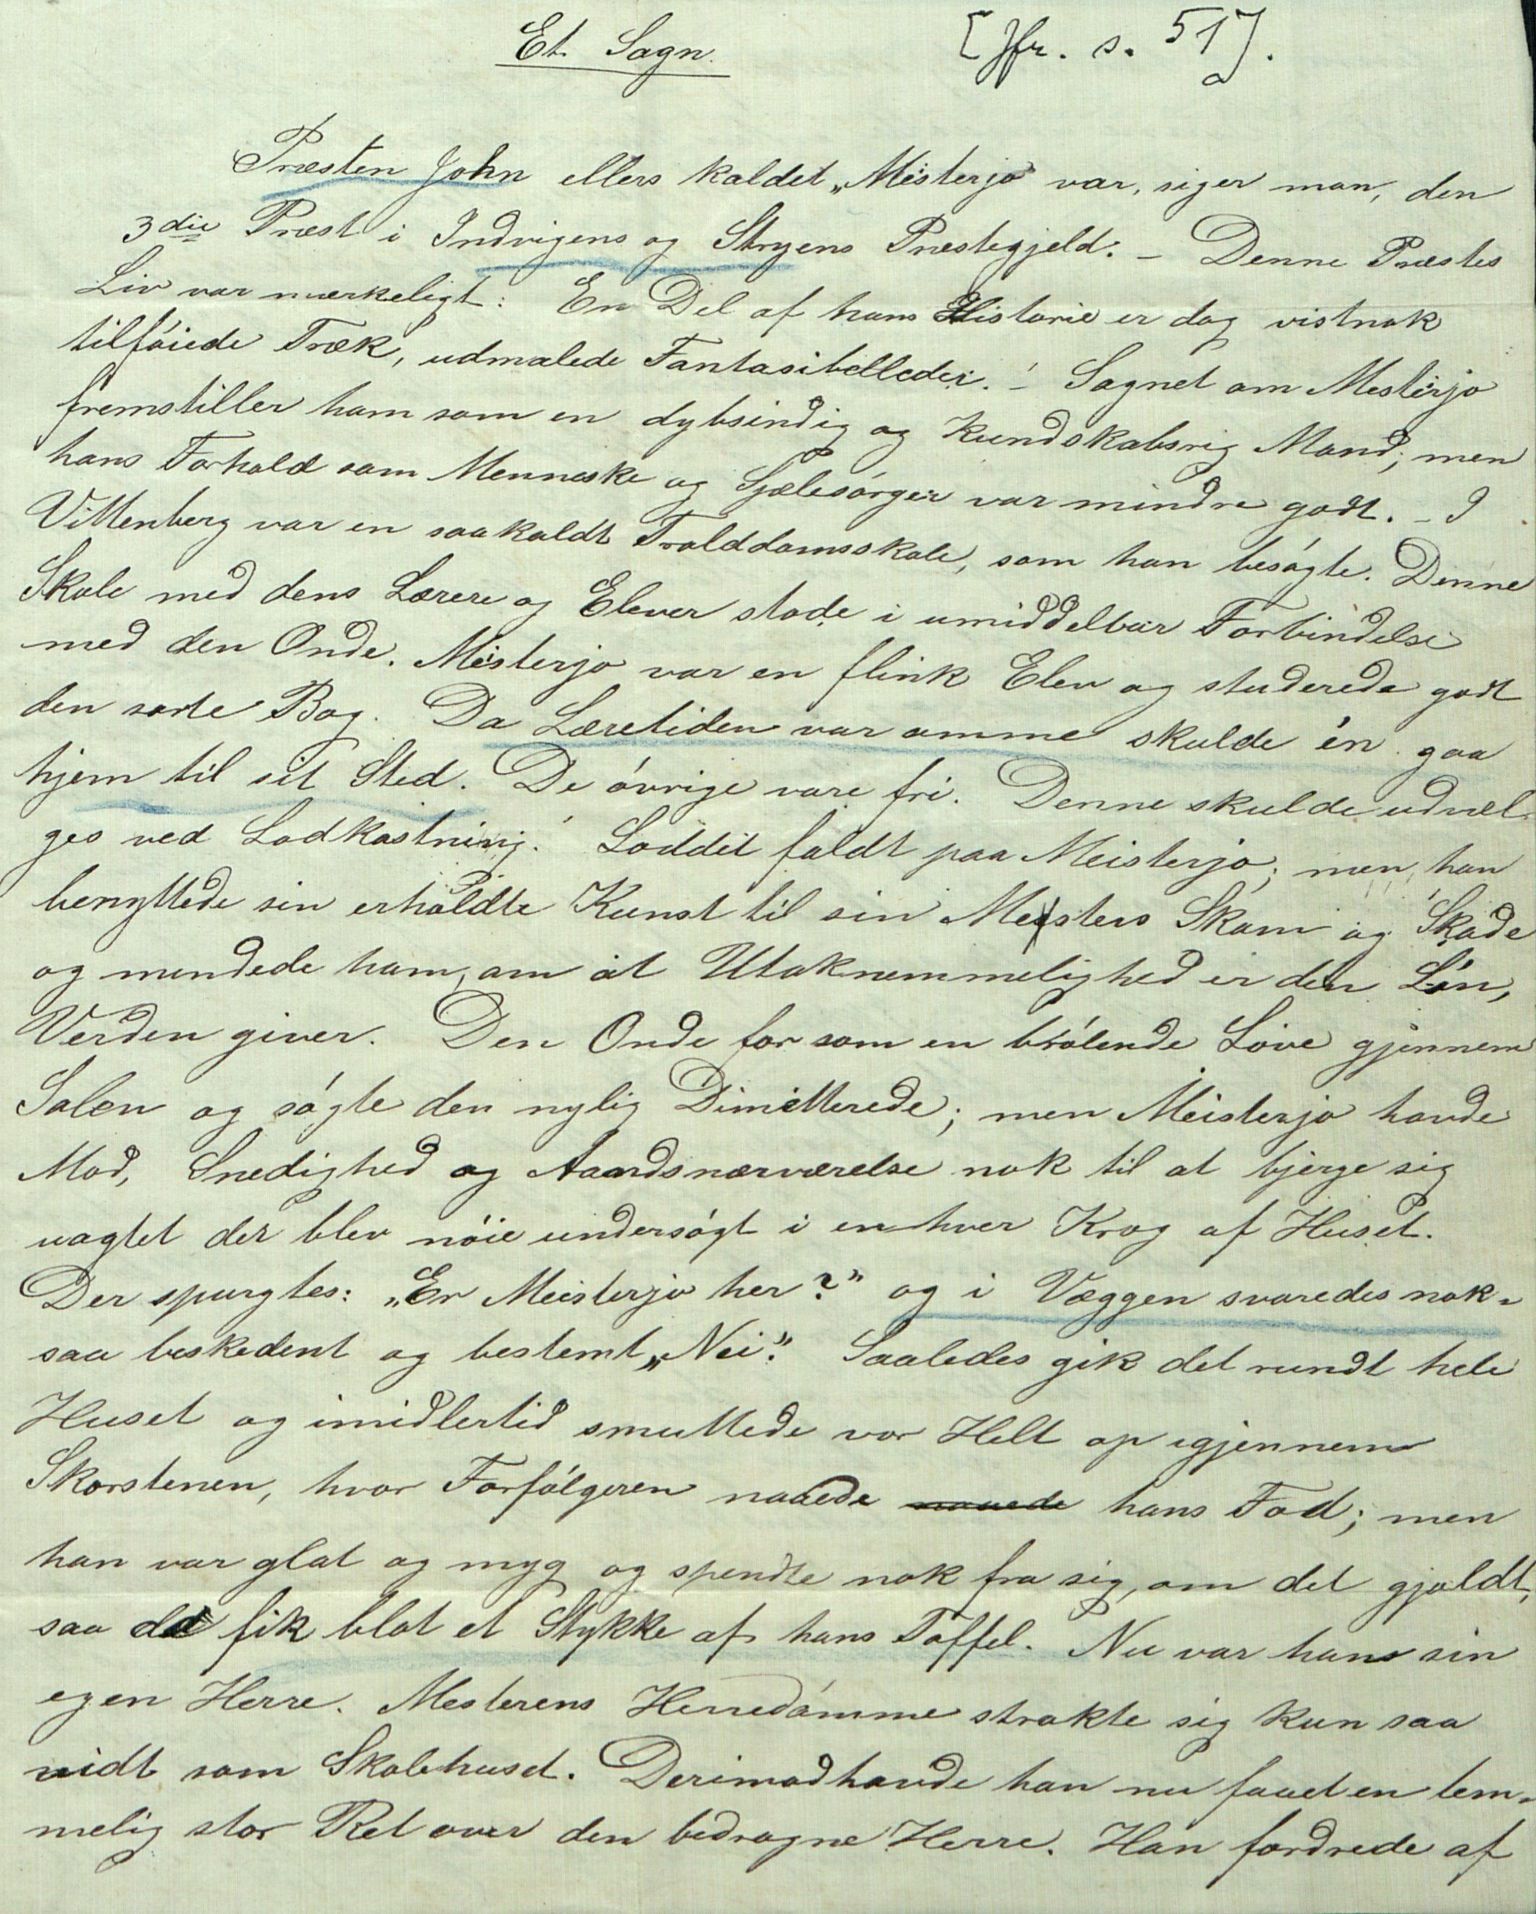 Et Sagn. [Jfr. s. 51].
Præsten John ellers kaldet „Meisterjo" var, siger man, den
3die Præst i Indvigens og Stryens Præstegjeld. – Denne Præstes
Liv var mærkeligt: En Del af hans Historie er dog vistnok
tilføiede Træk, udmalede Fantasibelleder. – Sagnet om Mesterjo
fremstiller ham som en dybsindig og kundskabsrig Mand; men
hans Forhold som Menneske og Sjælesørger var mindre godt. – I
Vittenberg var en saakaldt Trolddomsskole, som han besøgte. Denne
Skole med dens Lærere og Elever stode i umiddelbar Forbindelse
med den Onde. Meisterjo var en flink Elev og studerede godt
den sorte Bog. Da Læretiden var omme skulde én gaa
hjem til sit Sted. De øvrige vare fri. Denne skulde udvæl-
ges ved Lodkastning. Loddet faldt paa Meisterjo; men han
benyttede sin erholdte Kunst til sin Mesters Skam og Skade
og mindede ham om at Utaknemmelighed er den Løn,
Verden giver. Den Onde for som en brølende Løve gjennem
Salen og søgte den nylig Dimitterede; men Meisterjo havde
Mod, Snedighed og Aandsnærværelse nok til at bjerge sig
uagtet der blev nøie undersøgt i enhver Krog af Huset.
Der spurgtes: „Er Meisterjo her?" og i Væggen svaredes nok-
saa beskedent og bestemt „Nei". Saaledes gik det rundt hele
Huset og imidlertid smuttede vor Helt op igjennem
Skorstenen, hvor Forfølgeren naaede hans Fod; men
han var glat og myg og spendte nok fra sig, om det gjaldt,
saa de fik blot et Stykke af hans Tøffel. Nu var han sin
egen Herre. Mesterens Herredømme strakte sig kun saa
vidt som Skolehuset. Derimod havde han nu faaet en tem-
melig stor Ret over den bedragne Herre. Han fordrede af